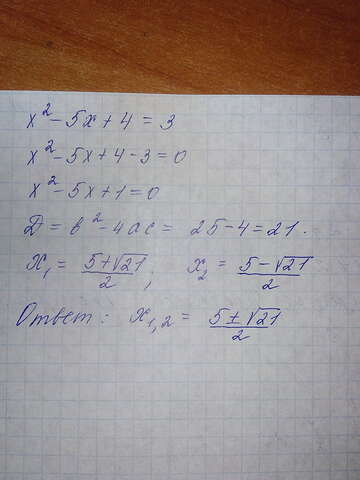 x² - 5x + 4 = 3
x² - 5x + 4 - 3 = 0
x² - 5x + 1 = 0
Д = в² - 4ac = 25 - 4 = 21.
x₁ = (5+√21)/2 ; x₂ = (5-√21)/2
Ответ: x₁,₂ = (5±√21)/2